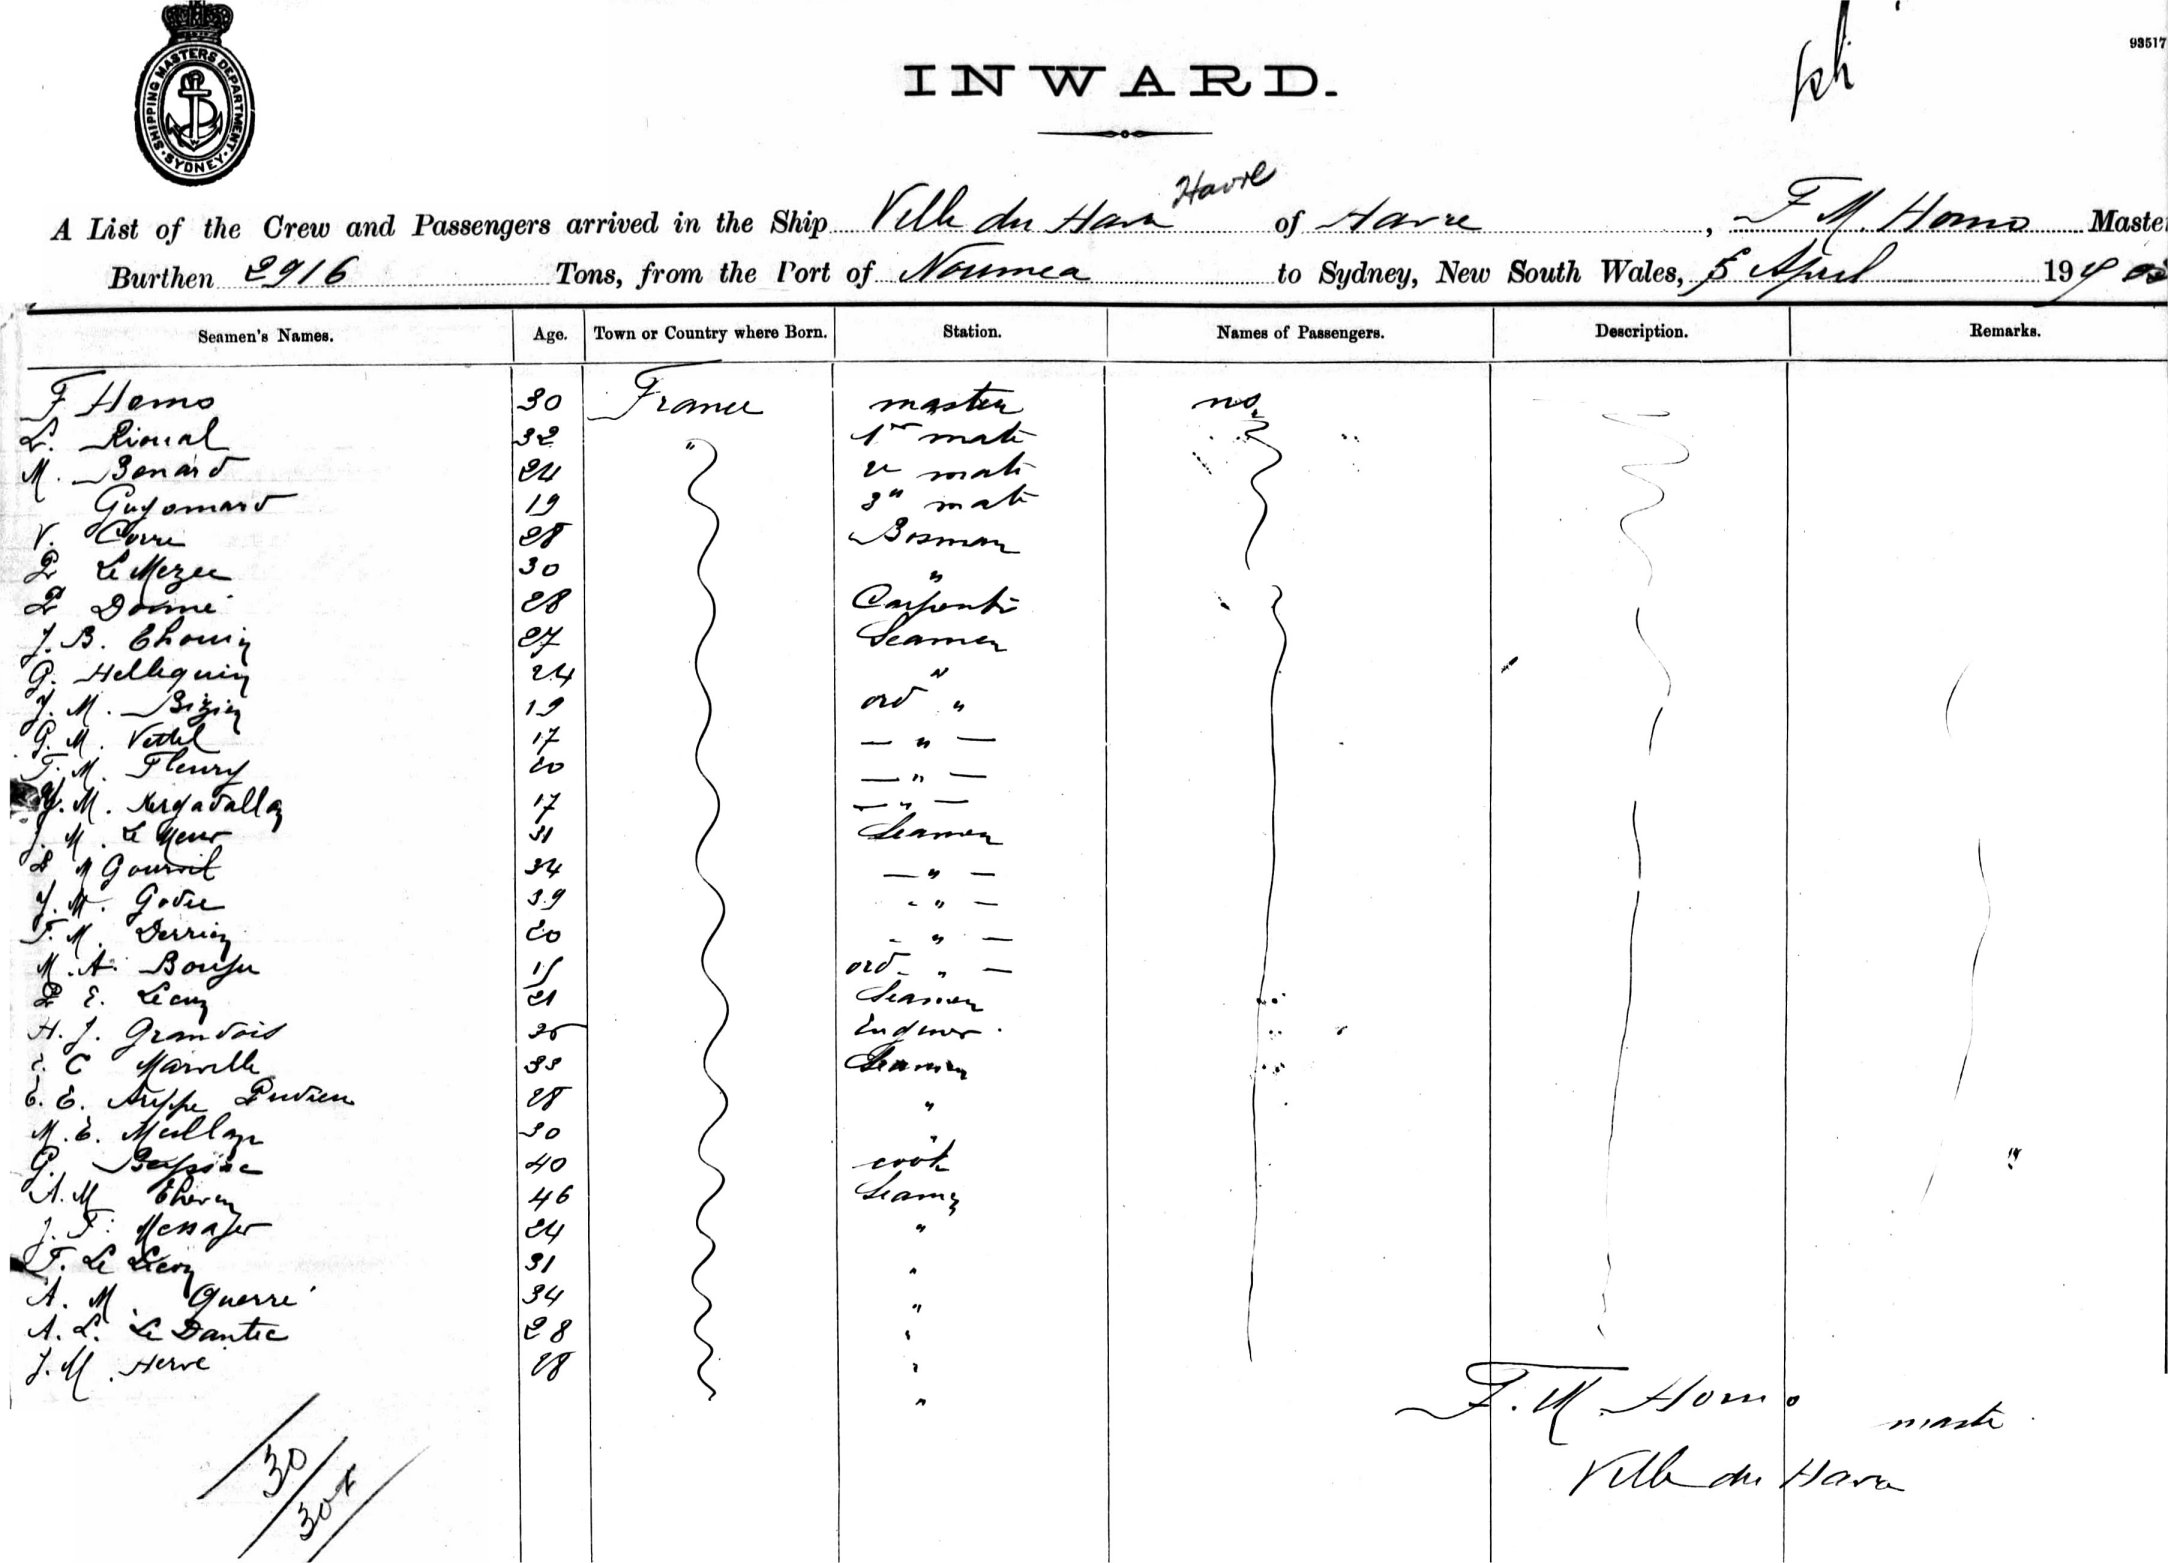 SHIPPING MASTERS DEPARTMENT
SYDNEY
93517
INWARD.
Havre
A List of the Crew and Passengers arrived in the Ship Ville du Havre of Havre, F M. Homo Master
Burthen 2916 Tons, from the Port of Noumea to Sydney, New South Wales, 5 April 190
Seamen's Names. Age. Town or Country where Born. Station. Names of Passengers. Description. Remarks.
F Homo 30 France master no
L. Rioual 32 " 1er mate
M. Bonard 24 2e mate
Guyomard 19 3" mate
V. Corre 28 Bosman
P Le Mezec 30 "
P Dormé 28 Carpenter
J. B. Ehouin 27 Seamen
G. Hellequin 24 "
J. M. Bizien 19 ord "
G. M. Vettel 17 — " —
F. M. Fleury 20 — " —
Y. M. Kergadallan 17 — " —
J. M. Le Meur 31 Seamen
M Gourvil 34 — " —
J. M. Godec 39 - " —
F. M. Derrien 20 - " —
M. A. 15 ord - " —
P E. 21 Seamen
H. J. Grandois 25 Engineer
C Marville 33 Seamen
E. E. Auppe 28 "
M. E. 30 "
G. 40 cook
A. M 46 Seamen
J. F. Messager 24 "
F. Le 31 "
A. M. Guerré 34 "
A. L. Le Dantec 28 "
J. M. Hervé 28 "
"
F. M. Homo master
Ville du Havre
30
30